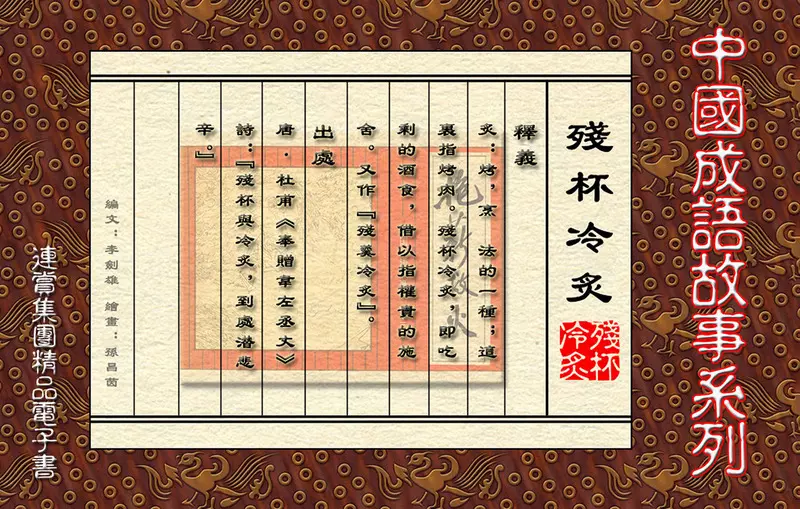 中國成語故事系列
殘杯冷炙
殘杯冷炙
釋義
炙：烤，烹 法的一種；這
裏指烤肉。殘杯冷炙，即吃
剩的酒食，借以指權貴的施
舍。又作『殘羹冷炙』。
出處
唐．杜甫《奉贈韋左丞丈》
詩：『殘杯與冷炙，到處潛悲
辛。』
編文：李劍雄 繪畫：孫昌茵
連賞集團精品電子書